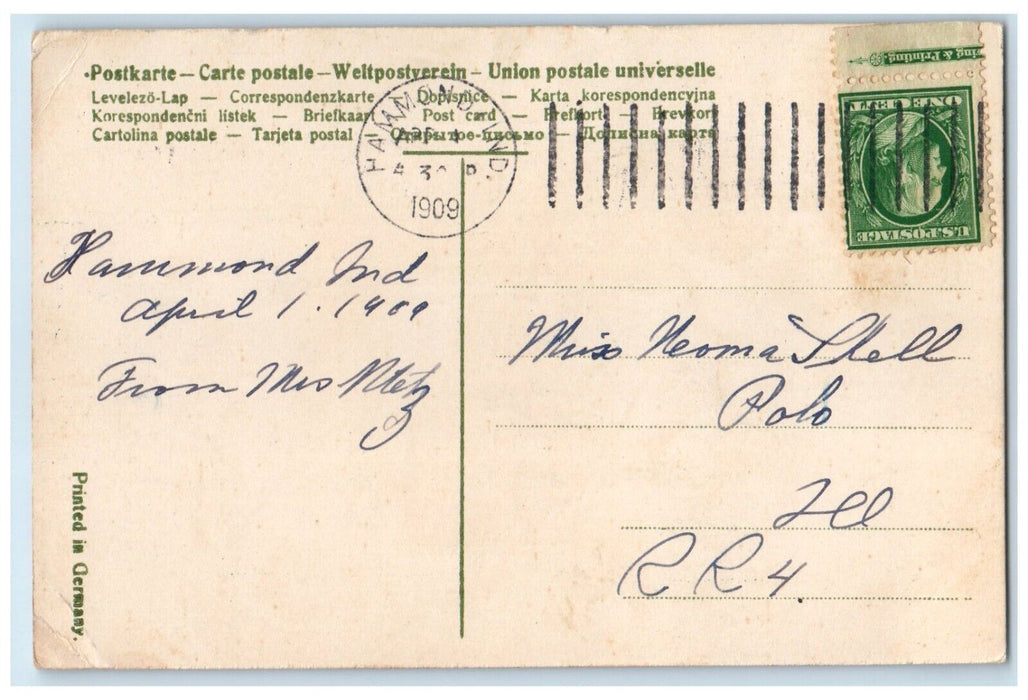 Postkarte – Carte postale – Weltpostverein – Union postale universelle
Levelező-Lap — Correspondenzkarte — Dopisnice — Karta korespondencyjna
Korespondenční lístek — Briefkaart — Post card — Brefkort — Brevkort
Cartolina postale — Tarjeta postal — Открытое письмо — Дописна карта
HAMMOND, IND.
APR 1
4 30 P
1909
ing & Printing.
U.S. POSTAGE
ONE CENT
Hammond Ind
April 1. 1909
From Mrs
Miss Neoma Stell
Polo
Ill
RR 4.
Printed in Germany.